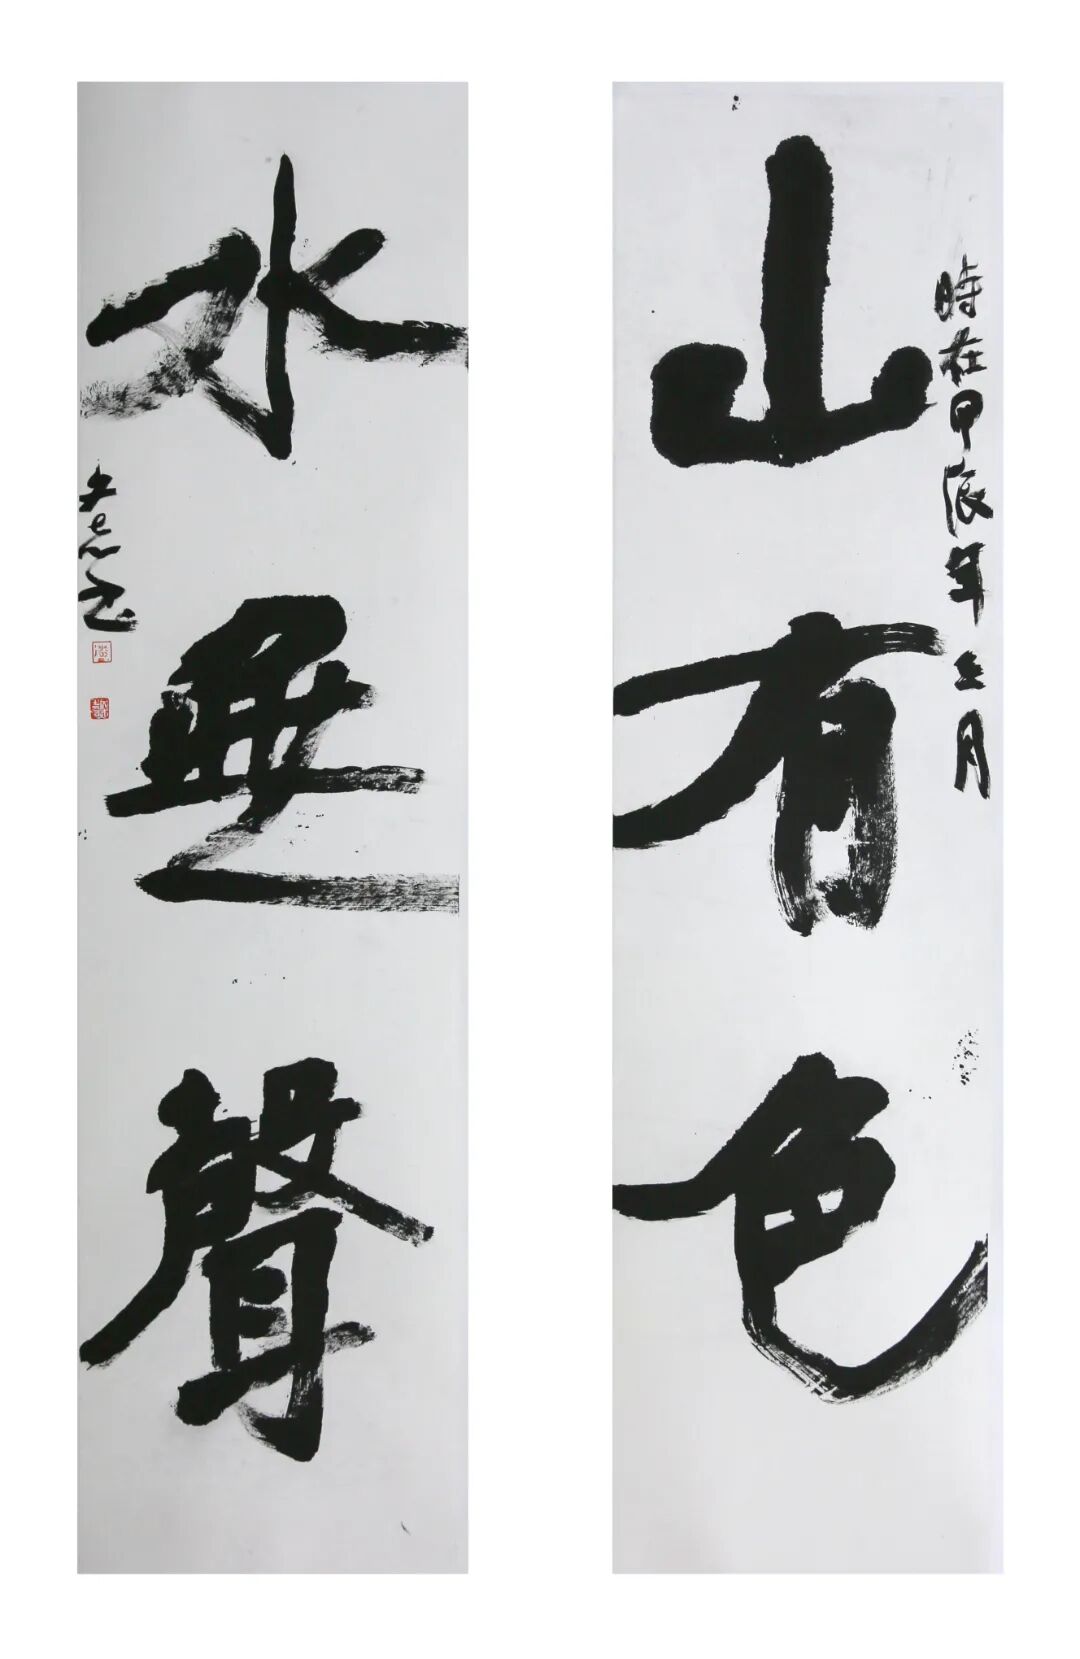 山有色
時在甲辰年三月
水無聲
书